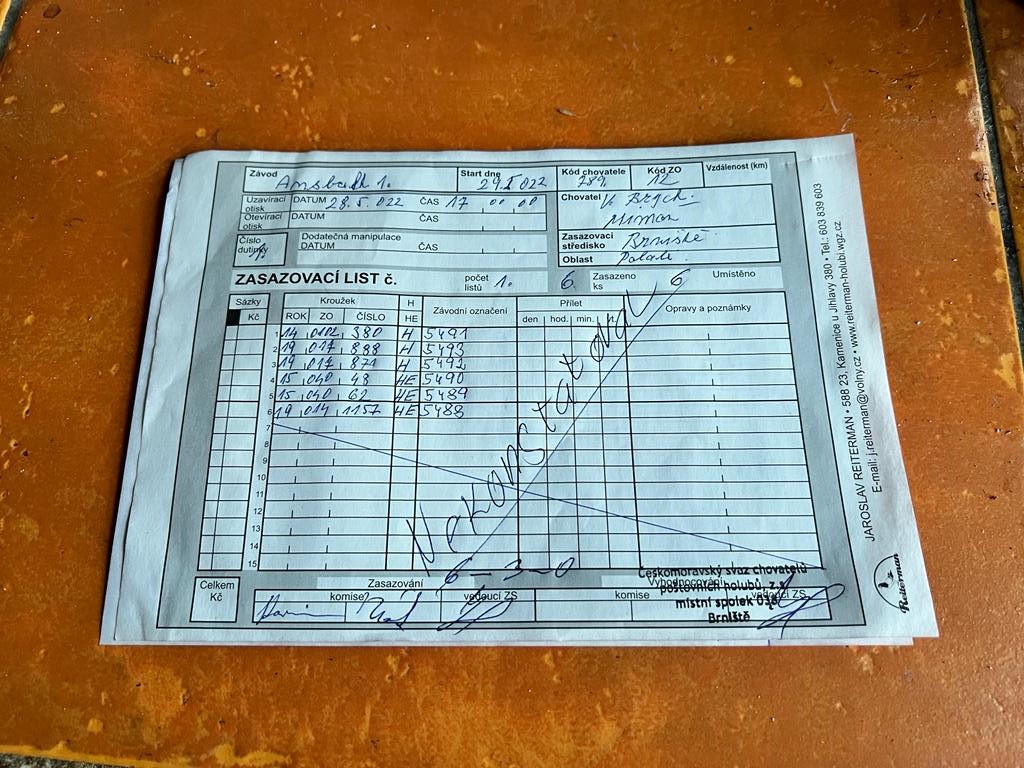 Závod Ansbach 1. Start dne 29.5 022 Kód chovatele 789 Kód ZO 12 Vzdálenost (km)
Uzavírací otisk DATUM 28.5.022 ČAS 17 00 00
Chovatel V. Brych.
Mimoň
Otevírací otisk DATUM ČAS
Číslo dutinky
Dodatečná manipulace
DATUM ČAS
Zasazovací středisko Brniště
Oblast
ZASAZOVACÍ LIST č. počet listů 1. 6. Zasazeno ks 6 Umístěno
Sázky Kroužek H Závodní označení Přílet Opravy a poznámky
Kč ROK ZO ČÍSLO HE den hod. min. vt.
1 14 0102 380 H 5491
2 19 017 888 H 5493
3 19 017 871 H 5492
4 15 040 48 HE 5490
5 15 040 62 HE 5489
6 19 014 1157 HE 5488
7
8
9
10
11
12
13
14
15
Nekonstatoval
6-3-0
Celkem Kč
Zasazování Vyhodnocování
komise vedoucí ZS komise vedoucí ZS
Českomoravský svaz chovatelů
poštovních holubů, z.s.
místní spolek 038
Brniště
JAROSLAV REITERMAN • 588 23, Kamenice u Jihlavy 380 • Tel.: 603 839 603
E-mail: j.reiterman@volny.cz • www.reiterman-holubi.wgz.cz
Reiterman